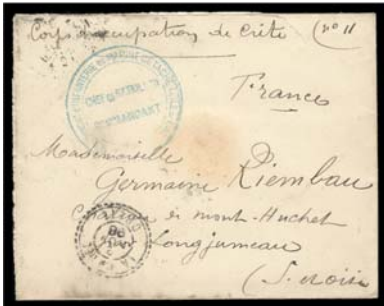 Corps d'occupation de Crète (n° 11
France
CHEF DE BATAILLON
COMMANDANT
Mademoiselle
Germaine Riembau
de mont-Huchet
Longjumeau
(S. et oise